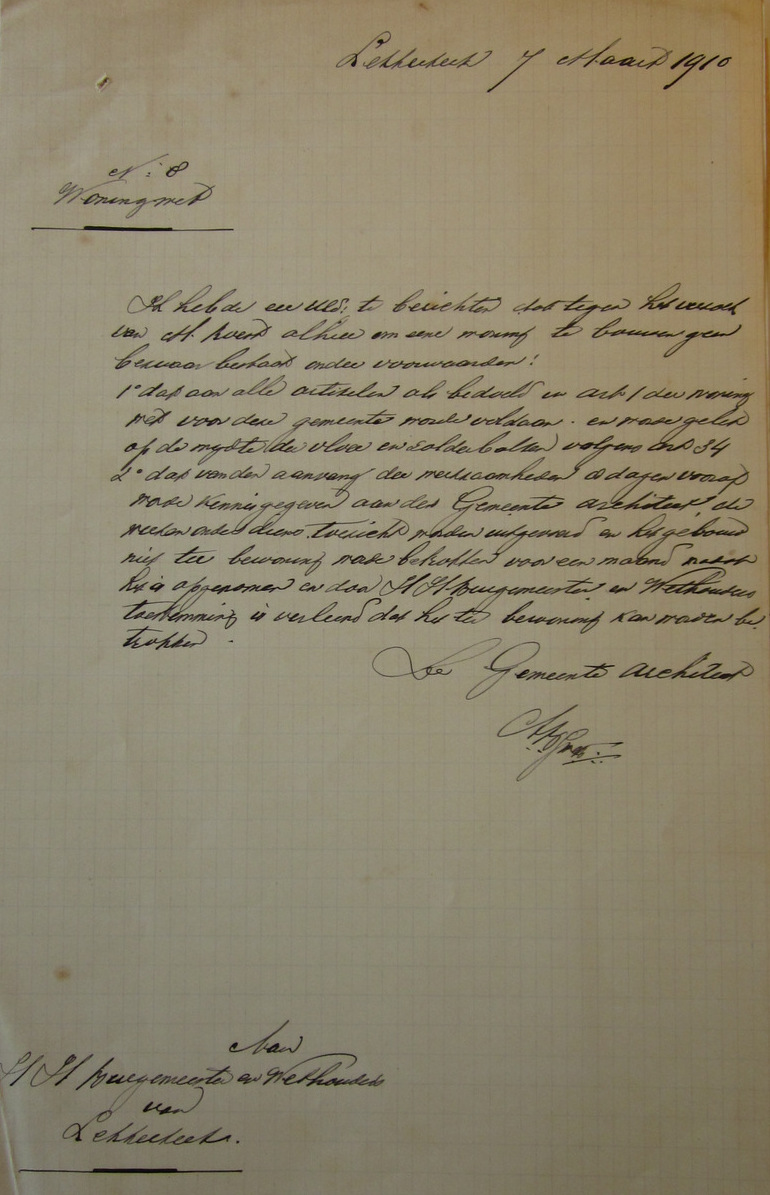 Lekkerkerk 7 Maart 1910
N: 8
Woningwet
Ik heb de eer UEd: te berichten dat tegen het verzoek
van M. alhier om eene woning te bouwen geen
bezwaar bestaat onder voorwaarden:
1° dat aan alle artikelen als bedoeld in art 1 der woning
wet voor deze gemeente worde voldaan. en worde gelet
op de wydte der vloer en zolderbalken volgens art 34
2° dat van den aanvang der werkzaamheden 8 dagen vooraf
worde kennis gegeven aan den Gemeente architect, de
werken onder diens toezicht worden uitgevoerd en het gebouw
niet ter bewoning worde betrokken voor een maand nadat
het is opgenomen en door HH Burgemeester en Wethouders
toestemming is verleend dat het ter bewoning kan worden be
trokken.
De Gemeente architect
Aan
HH Burgemeester en Wethouders
van
Lekkerkerk.